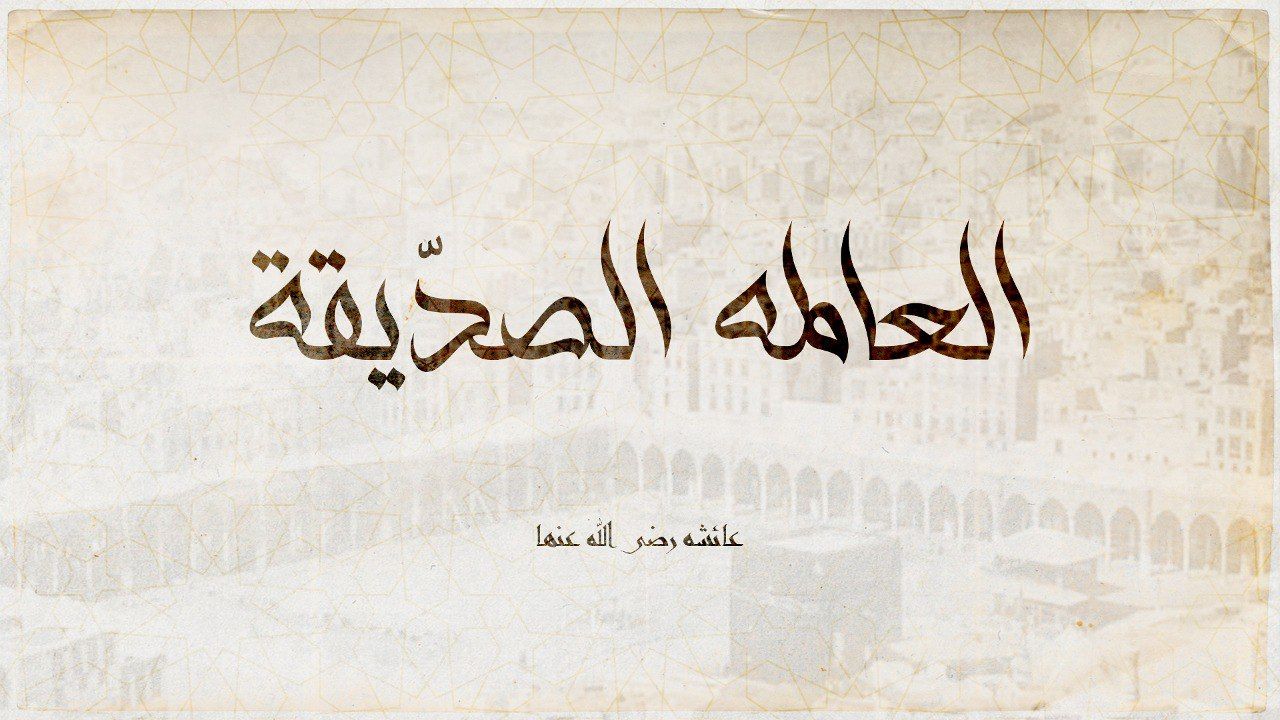 العامله الصدّيقة
عائشه رضي الله عنها